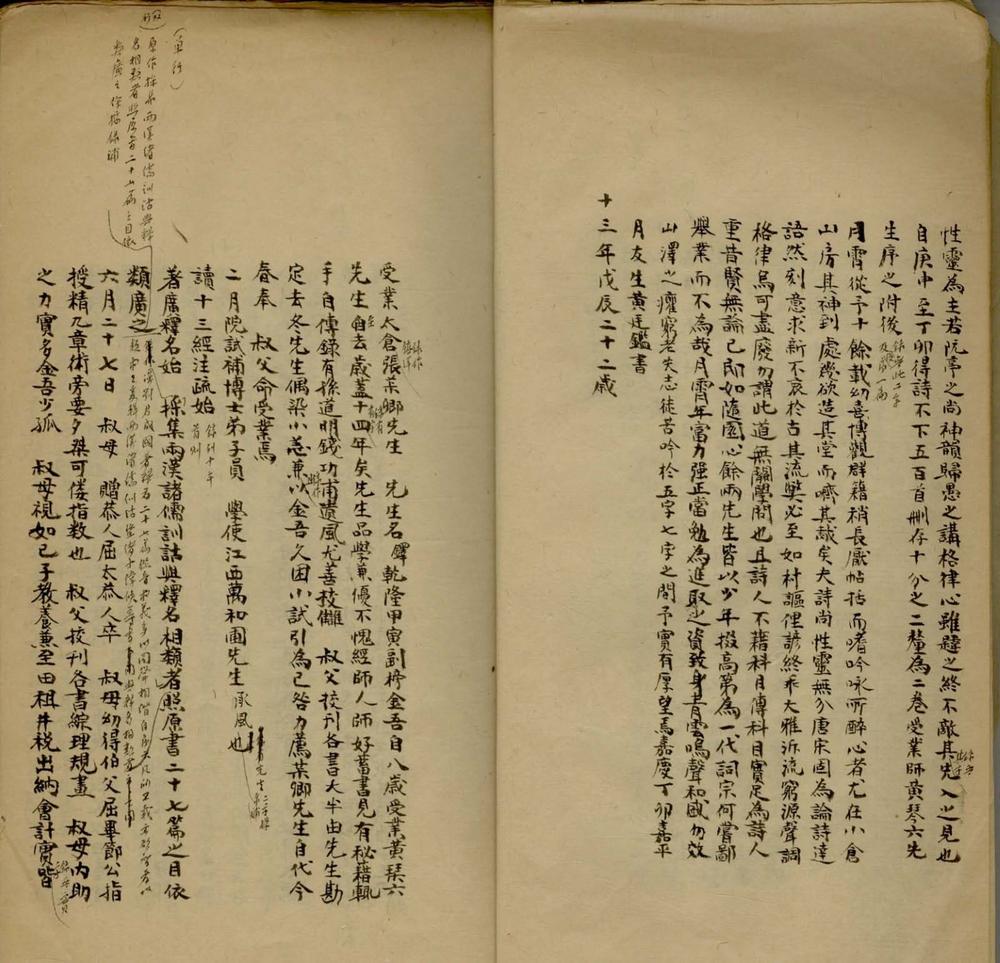 性靈為主若阮亭之尚神韻歸愚之講格律心雖韙之終不敵其先入之見也
自庚申至丁卯得詩不下五百首刪存十分之二釐為二卷受業師黃琴六先
生序之附後
月霄從予十餘載幼喜博觀群籍稍長厭帖括而嗜吟咏所醉心者尤在小倉
山房其神到處幾欲造其堂而嚌其胾矣夫詩尚性靈無分唐宋固為論詩達
語然刻意求新不衷於古其流弊必至如村謳俚諺終乖大雅泝流窮源聲調
格律烏可盡廢勿謂此道無關學問也且詩人不藉科目傳科目實足為詩人
重昔賢無論已即如隨園心餘兩先生皆以少年掇高第為一代詞宗何嘗鄙
舉業而不為哉月霄年富力强正當勉為進取之資致身青雲鳴聲和盛勿效
山澤之癯窮老矢志徒苦吟於五字七字之間予實有厚望焉嘉慶丁卯嘉平
月友生黃廷鑑書
十三年戊辰二十二歲
受業太倉張某卿先生 先生名鐸乾隆甲寅副榜金吾自八歲受業黃琴六
先生自去歲蓋十四年矣先生品學兼優不愧經師人師好蓄書見有秘藉輒
手自傳錄有孫道明錢功甫遺風尤善挍讎 叔父挍刊各書大半由先生勘
定去冬先生偶染小恙兼以金吾久困小試引為己咎力薦某卿先生自代今
春奉 叔父命受業焉
二月院試補博士弟子員 學使江西萬和圃先生承風也
讀十三經注疏始
著廣釋名始 採集兩漢諸儒訓詁與釋名相類者照原書二十七篇之目依
類廣之
六月二十七日 叔母 贈恭人屈太恭人卒 叔母幼得伯父屈畢節公指
授精九章術旁要夕桀可僂指数也 叔父挍刊各書綜理規畫 叔母內助
之力實多金吾少孤 叔母視如己子教養兼至田租井税出納會計實皆
(單行)
原作採集兩漢諸儒訓詁與釋
名相類者照原書二十七篇之目依
類廣之